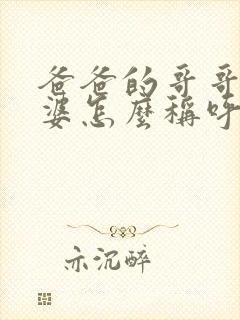 爸爸的哥哥
婆怎麼稱呼
亦沉醉